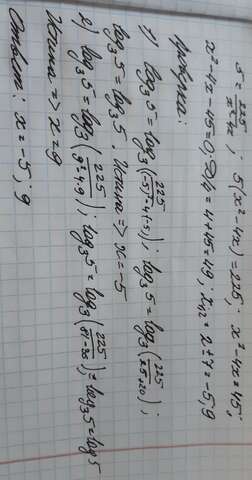 5 = 225/(x²-4x); 5(x²-4x) = 225; x²-4x=45;
x²-4x-45=0; D/4 = 4+45=49; x₁,₂ = 2±7 = -5; 9
Проверка:
1) log₃5 = log₃(225/((-5)²-4·(-5))); log₃5 = log₃(225/(25+20));
log₃5 = log₃5. Истина => x = -5
2) log₃5 = log₃(225/(9²-4·9)); log₃5 = log₃(225/(81-36)); log₃5 = log₃5
Истина => x = 9
Ответ: x = -5; 9